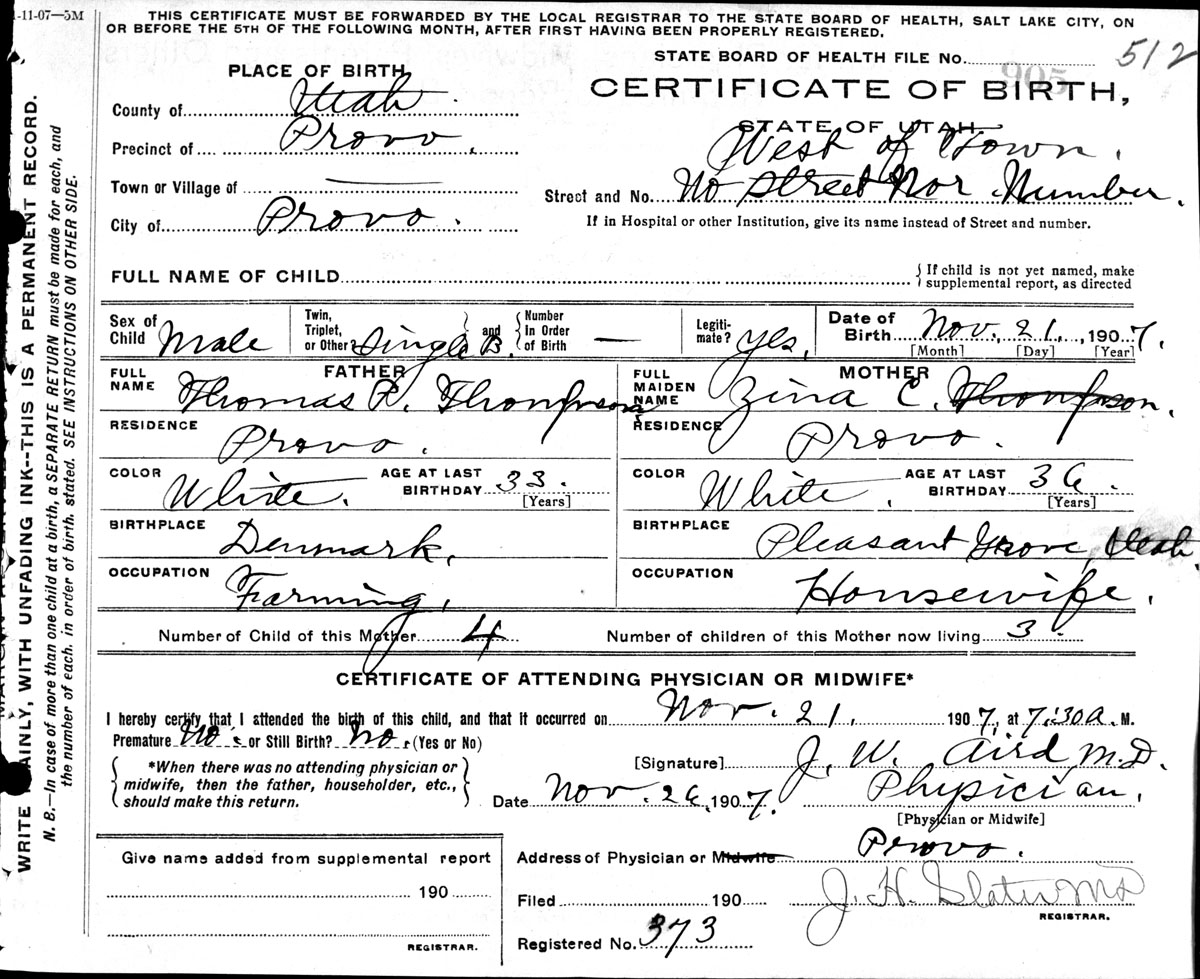 1-11-07—5M
THIS CERTIFICATE MUST BE FORWARDED BY THE LOCAL REGISTRAR TO THE STATE BOARD OF HEALTH, SALT LAKE CITY, ON
OR BEFORE THE 5TH OF THE FOLLOWING MONTH, AFTER FIRST HAVING BEEN PROPERLY REGISTERED.
STATE BOARD OF HEALTH FILE No. 512
905
PLACE OF BIRTH
CERTIFICATE OF BIRTH,
STATE OF UTAH
County of Utah.
Precinct of Provo,
West of Town.
Town or Village of —
Street and No. No Street Nor Number.
City of Provo.
If in Hospital or other Institution, give its name instead of Street and number.
FULL NAME OF CHILD
If child is not yet named, make supplemental report, as directed
Sex of Child Male
Twin, Triplet, or Other Single B. and Number In Order of Birth —
Legiti-mate? Yes,
Date of Birth Nov. 21, 1907.
[Month] [Day] [Year]
FATHER
FULL NAME Thomas R. Thompson
MOTHER
FULL MAIDEN NAME Zina C. Thompson.
RESIDENCE Provo.
RESIDENCE Provo.
COLOR White. AGE AT LAST BIRTHDAY 33. [Years]
COLOR White. AGE AT LAST BIRTHDAY 36. [Years]
BIRTHPLACE Denmark,
BIRTHPLACE Pleasant Grove, Utah.
OCCUPATION Farming,
OCCUPATION Housewife.
Number of Child of this Mother 4
Number of children of this Mother now living 3.
CERTIFICATE OF ATTENDING PHYSICIAN OR MIDWIFE*
I hereby certify that I attended the birth of this child, and that it occurred on Nov. 21. 1907, at 7:30 a. M.
Premature No. or Still Birth? No. (Yes or No)
*When there was no attending physician or midwife, then the father, householder, etc., should make this return.
[Signature] J. W. Aird M.D.
Date Nov. 26, 1907. Physician.
[Physician or Midwife]
Give name added from supplemental report
190
REGISTRAR.
Address of Physician or Midwife Provo.
Filed 190 J. H. Slater MD
REGISTRAR.
Registered No. 373
WRITE PLAINLY, WITH UNFADING INK--THIS IS A PERMANENT RECORD.
N. B.—In case of more than one child at a birth, a SEPARATE RETURN must be made for each, and
the number of each, in order of birth, stated. SEE INSTRUCTIONS ON OTHER SIDE.